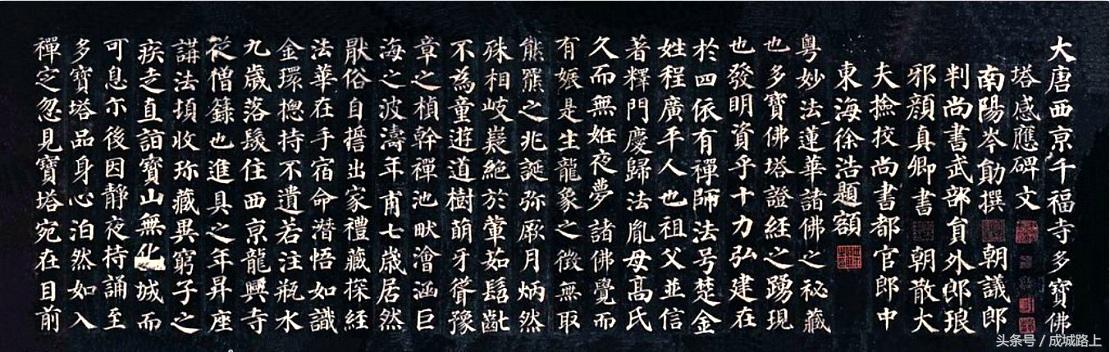 大唐西京千福寺多寶佛
塔感應碑文
南陽岑勛撰 朝議郎
判尚書武部貟外郎琅
邪顏真卿書 朝散大
夫撿挍尚書都官郎中
東海徐浩題額
粵妙法蓮華諸佛之秘藏
也多寶佛塔證經之踴現
也發明資乎十力弘建在
於四依有禪師法号楚金
姓程廣平人也祖父並信
著釋門慶歸法胤母髙氏
久而無姙夜夢諸佛覺而
有娠是生龍象之徵無取
熊羆之兆誕弥厥月炳然
殊相岐嶷絕於葷茹髫齔
不為童遊道樹萌牙聳豫
章之楨幹禪池畎澮涵巨
海之波濤年甫七歲居然
猒俗自誓出家禮藏探經
法華在手宿命潛悟如識
金環揔持不遺若注瓶水
九歲落髮住西京龍興寺
從僧籙也進具之年昇座
講法頓收珎藏異窮子之
疾走直詣寶山無化城而
可息尒後因靜夜持誦至
多寶塔品身心泊然如入
禪定忽見寶塔宛在目前
头条号 / 成城路上